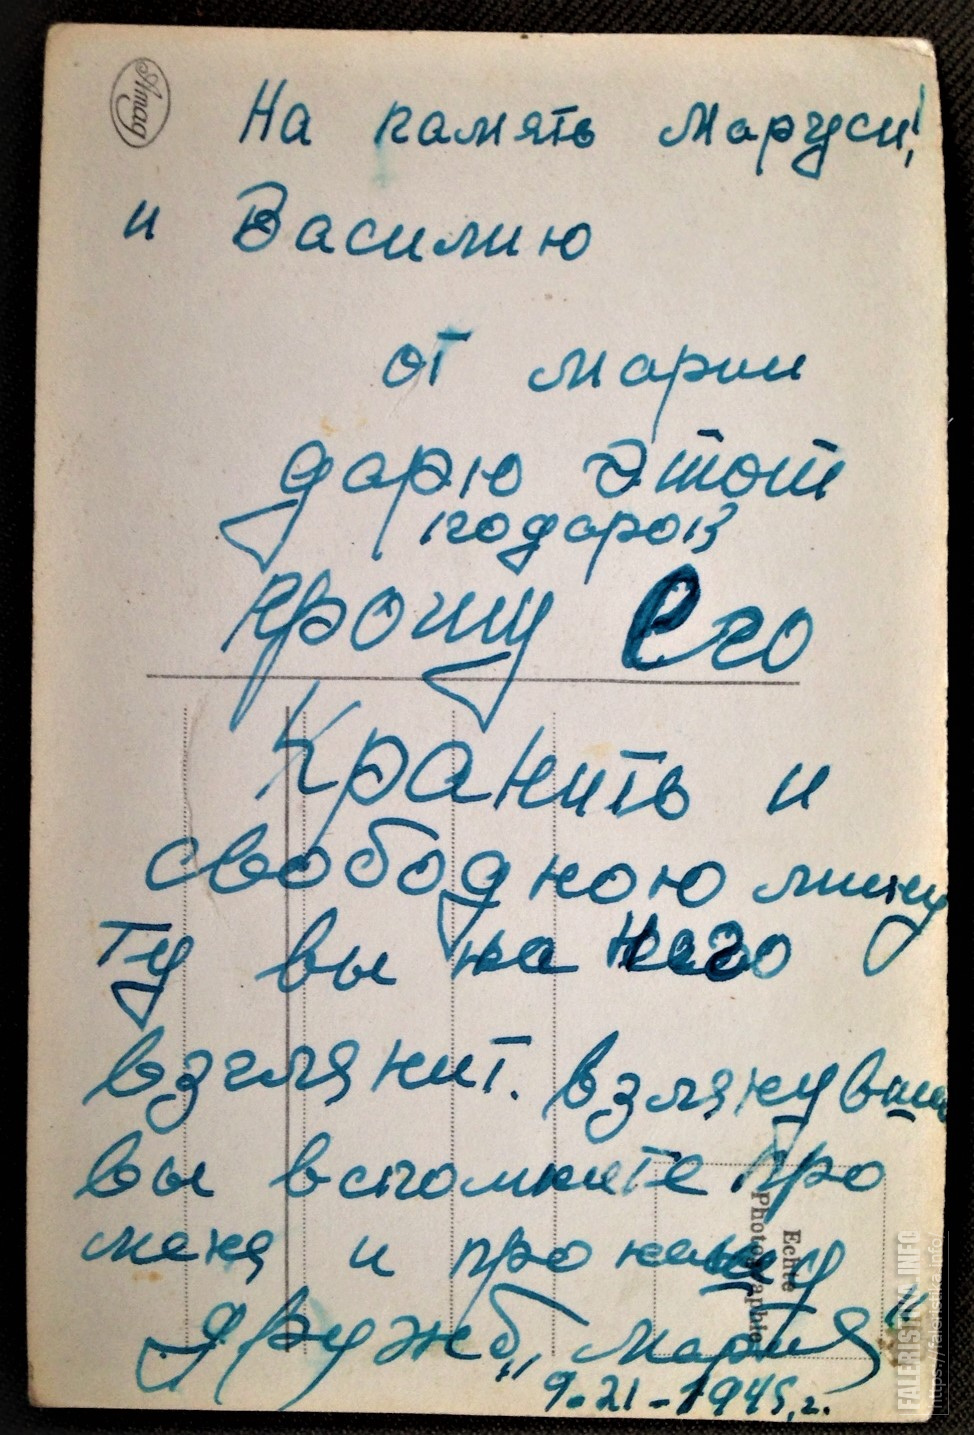 Amag
На память Маруси!
и Василию
от марии
дарю этот
подарок
прошу Его
Хранить и
свободною мину
ту вы на Него
взглянит. взглянувши
вы вспомните про
меня и про нашу
дружб„ мария"
9-21-1945,г.
Echte
Photographie
FALERISTIKA.INFO
https://faleristika.info